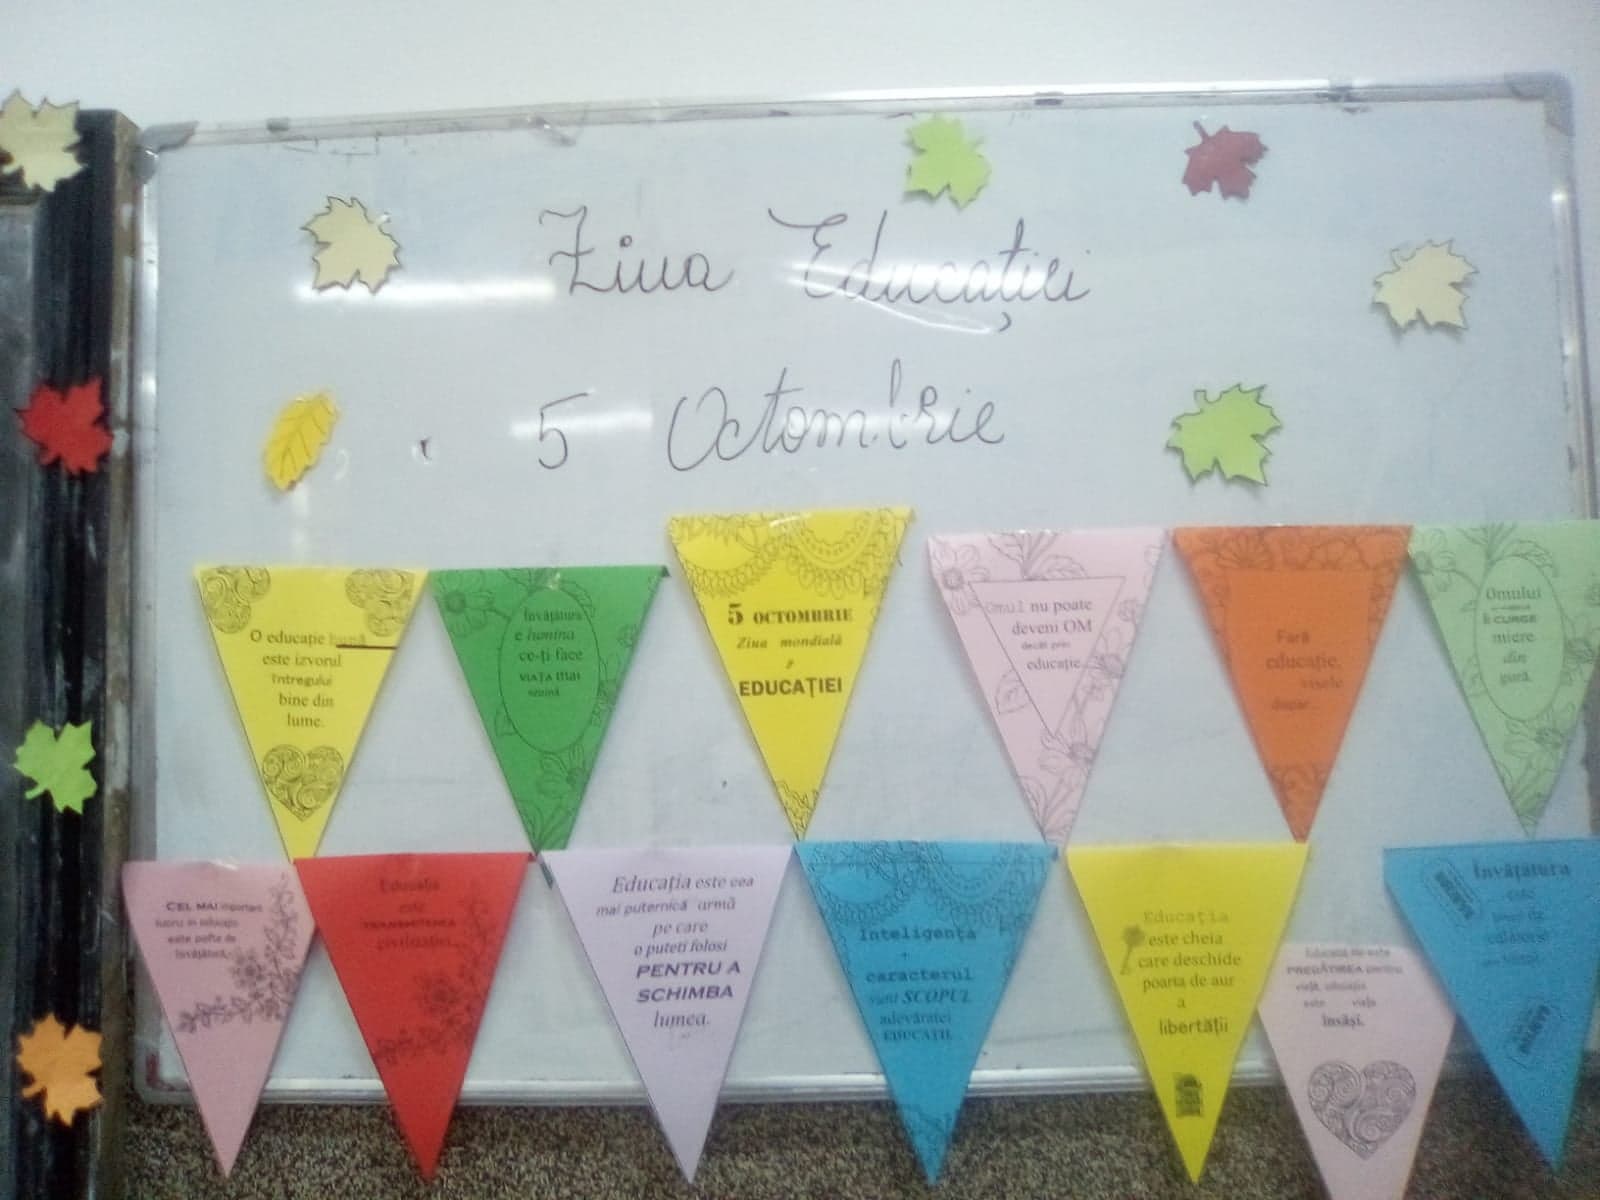 Ziua Educației
5 Octombrie
O educație bună
este izvorul
întregului
bine din
lume.
Învățătura
e lumina
ce-ți face
VIAȚA mai
senină
5 OCTOMBRIE
Ziua mondială
a
EDUCAȚIEI
Omul nu poate
deveni OM
decât prin
educație.
Fară
educație,
visele
dispar...
Omului
îi CURGE
miere
din
gură.
CEL MAI important
lucru în educație
este pofta de
învățătură.
Educația
este
TRANSMITEREA
civilizației.
Educația este cea
mai puternică armă
pe care
o puteti folosi
PENTRU A
SCHIMBA
lumea.
Inteligența
+
caracterul
sunt SCOPUL
adevăratei
EDUCAȚII.
Educația
este cheia
care deschide
poarta de aur
a
libertății
Educația nu este
PREGĂTIREA pentru
viață, educația
este viața
însăși.
Învățătura